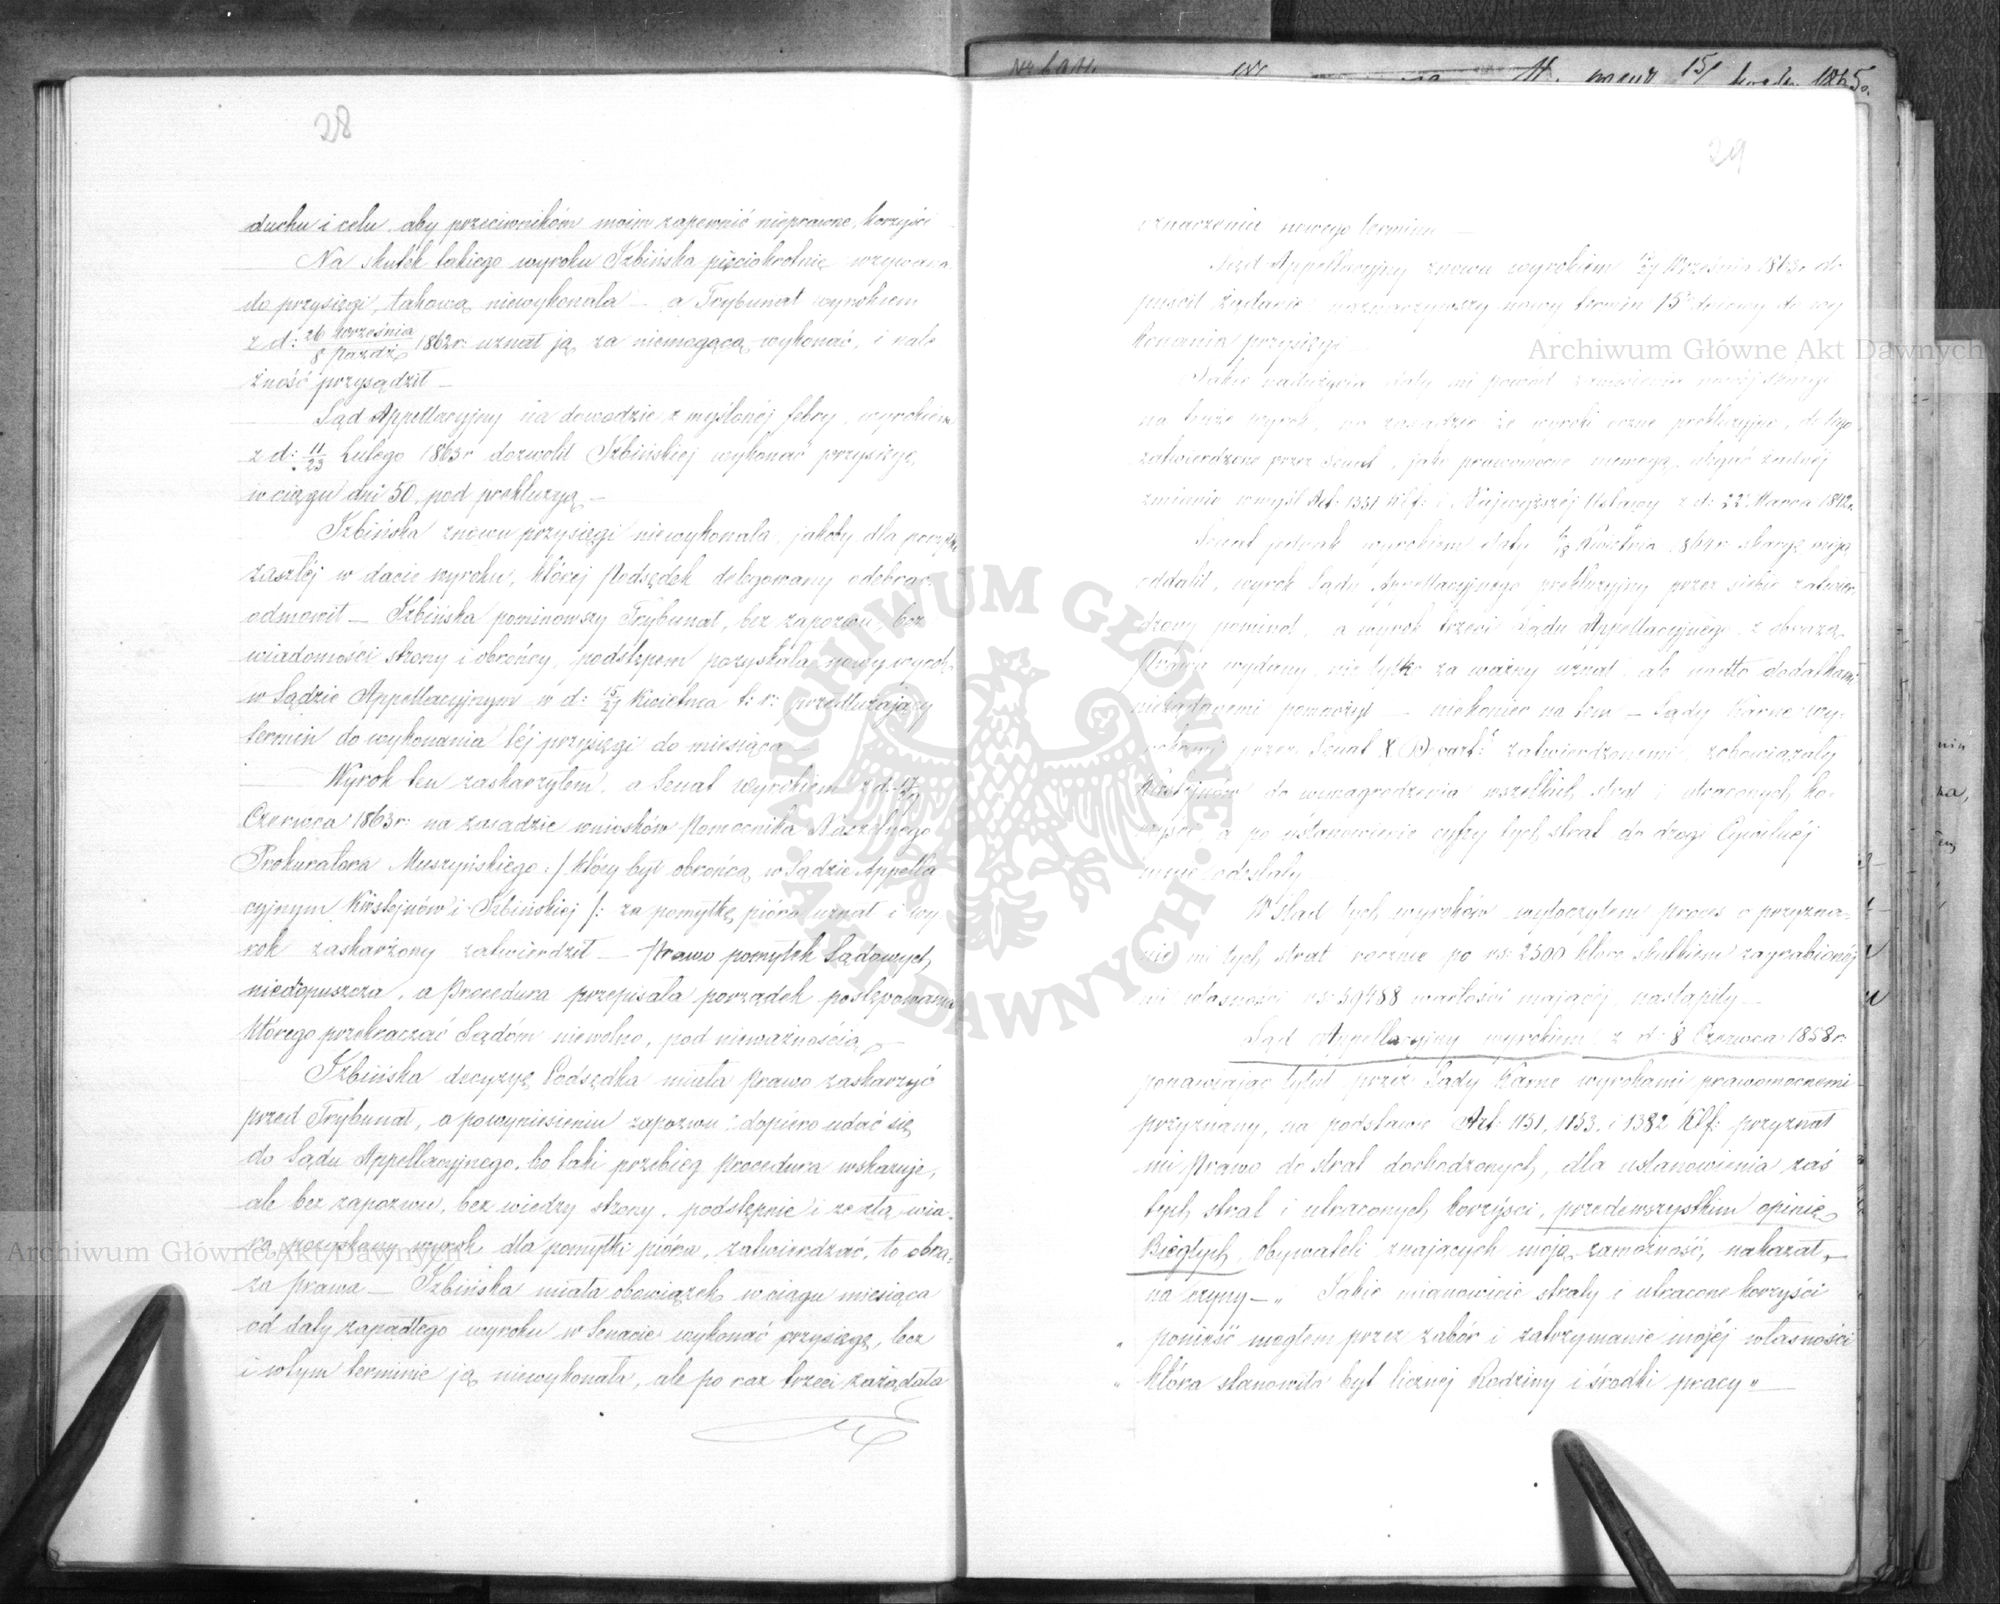 28
duchu i celu, aby przeciwnikóm moim zapewnić nieprawne korzyści
Na skutek takiego wyroku Izbińska pięciokrotnie wzywana
do przysięgi, takową niewykonała — a Trybunał wyrokiem
z d: 26 Września / 8 Paźdź 1862 r: uznał ją za niemogącą wykonać, i nale
żność przysądził —
Sąd Appellacyjny na dowodzie zmyślonéj febry, wyrokiem
z d: 11/23 Lutego 1863 r dozwolił Izbińskiej wykonać przysięgę
w ciągu dni 50, pod prekluzyą —
Izbińska znowu przysięgi niewykonała, jakoby dla pomyłki
zaszłéj w dacie wyroku, któréj Podsędek delegowany odebrać
odmówił — Izbińska pominąwszy Trybunał, bez zapozwu, bez
wiadomości strony i obrońcy, podstępem pozyskała nowy wyrok
w Sądzie Appellacyjnym w d: 15/27 Kwietnia t: r: przedłużający
termin do wykonania téj przysięgi do miesiąca —
Wyrok ten zaskarżyłem, a Senat wyrokiem z d: 17/29
Czerwca 1863 r: na zasadzie wniosków Pomocnika Naczelnego
Prokuratora Muszyńskiego :/ który był obrońcą w Sądzie Appella
cyjnym Kirstejnów i Izbińskiej /: za pomyłkę pióra uznał i wy
rok zaskarżony zatwierdził — Prawo pomyłek Sądowych
niedopuszcza, a Procedura przepisała porządek postępowania
którego przekraczać Sądóm niewolno, pod nieważnością —
Izbińska decyzyę Podsędka miała Prawo zaskarżyć
przed Trybunał, a po wyniesieniu zapozwu dopiero udać się
do Sądu Appellacyjnego, bo taki przebieg Procedura wskazuje,
ale bez zapozwu, bez wiedzy strony, podstępnie i ze złą wia-
rą pozyskany wyrok dla pomyłki pióra, zatwierdzać, to obra-
za prawa — Izbińska miała obowiązek w ciągu miesiąca
od daty zapadłego wyroku w Senacie wykonać przysięgę, lecz
i w tym terminie ją niewykonała, ale po raz trzeci zażądała
29
oznaczenia nowego terminu —
Sąd Appellacyjny znowu wyrokiem Września 1863 r do
puścił żądanie naznaczywszy nowy termin 15 dniowy do wy
konania przysięgi —
Takie nadużycia dały mi powód zaniesienia nowéj skargi
na tenże wyrok, na zasadzie że wyroki oczne prekluzyjne, do tego
zatwierdzone przez Senat, jako prawomocne niemogą ulegać żadnéj
zmianie w myśl Art: 1351 Klf: i Najwyższéj Ustawy z d: 22 Marca 1842 r.
Senat jednak wyrokiem daty Kwietnia 1864 r skargę moją
oddalił, wyrok Sądu Appellacyjnego prekluzyjny przez siebie zatwier
dzony pominął, a wyrok trzeci Sądu Appellacyjnego z obrazą
Prawa wydany, nie tylko za ważny uznał, ale nadto dodatkami
nieżądanemi pomnożył — niekoniec na tem — Sądy Karne wy-
rokami przez Senat X Depart: zatwierdzonemi, zobowiązały
Kirstejnów do wynagrodzenia wszelkich strat i utraconych ko-
rzyści, a po ustanowienie cyfry tych strat do drogi Cywilnéj
mnie odesłały —
W ślad tych wyroków wytoczyłem proces o przyzna-
nie mi tych strat rocznie po rs: 2500 które skutkiem zagrabionéj
mi własności rs: 59488 wartości mającéj nastąpiły —
Sąd Appellacyjny wyrokiem z d: 8 Czerwca 1858 r:
ponawiając tytuł przez Sądy Karne wyrokami prawomocnemi
przyznany, na podstawie Art: 1151, 1153, i 1382 Klf: przyznał
mi Prawo do strat dochodzonych, dla ustanowienia zaś
tych strat i utraconych korzyści, przedewszystkim opinię
Biegłych, obywateli znających moją zamożność, nakazał,
na czyny — „ Jakie mianowicie straty i utracone korzyści
„ ponieść mogłem przez zabór i zatrzymanie mojéj własności
„ która stanowiła byt licznéj Rodziny i środki pracy” —
1865.
Archiwum Główne Akt Dawnych
Archiwum Główne Akt Dawnych
ARCHIWUM GŁÓWNE AKT DAWNYCH